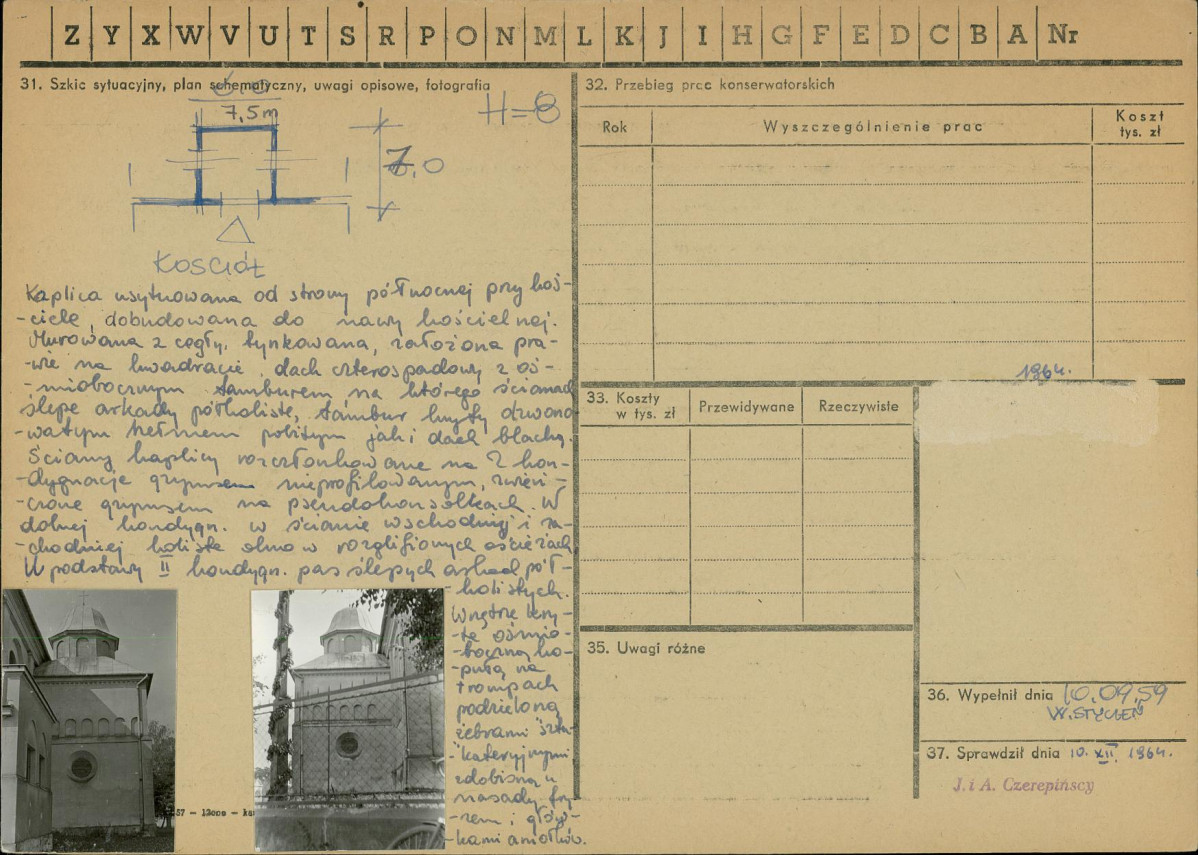 Z Y X W V U T S R P O N M L K J I H G F E D C B A Nr
31. Szkic sytuacyjny, plan schematyczny, uwagi opisowe, fotografia
7,5 m
H=8
7,0
KOŚCIÓŁ
Kaplica usytuowana od strony północnej przy koś-
-ciele, dobudowana do nawy kościelnej.
Murowana z cegły, tynkowana, założona pra-
-wie na kwadracie, dach czterospadowy z oś-
-miobocznym tamburem na którego ścianach
ślepe arkady półkoliste, tambur kryty dzwono-
-watym hełmem pobitym jak i dach blachą.
Ściany kaplicy rozczłonkowane na 2 kon-
-dygnacje gzymsem nieprofilowanym, zwień-
-czone gzymsem na pseudokonsolkach. W
dolnej kondygn. w ścianie wschodniej i za-
-chodniej koliste okno w rozglifionych ościeżach.
U podstawy II kondygn. pas ślepych arkad pół-
-kolistych.
Wnętrze kry-
-te ośmio-
-boczną ko-
-pułą na
trompach
podzieloną
żebrami sztu-
-kateryjnymi,
zdobioną u
nasady fry-
-zem i głów-
-kami aniołków.
57 — 12000 —
32. Przebieg prac konserwatorskich
Rok
Wyszczególnienie prac
Koszt
tys. zł
1964.
33. Koszty
w tys. zł
Przewidywane
Rzeczywiste
35. Uwagi różne
36. Wypełnił dnia 10.09.59
W. STYCZEŃ
37. Sprawdził dnia 10. XII. 1964.
J. i A. Czerepińscy